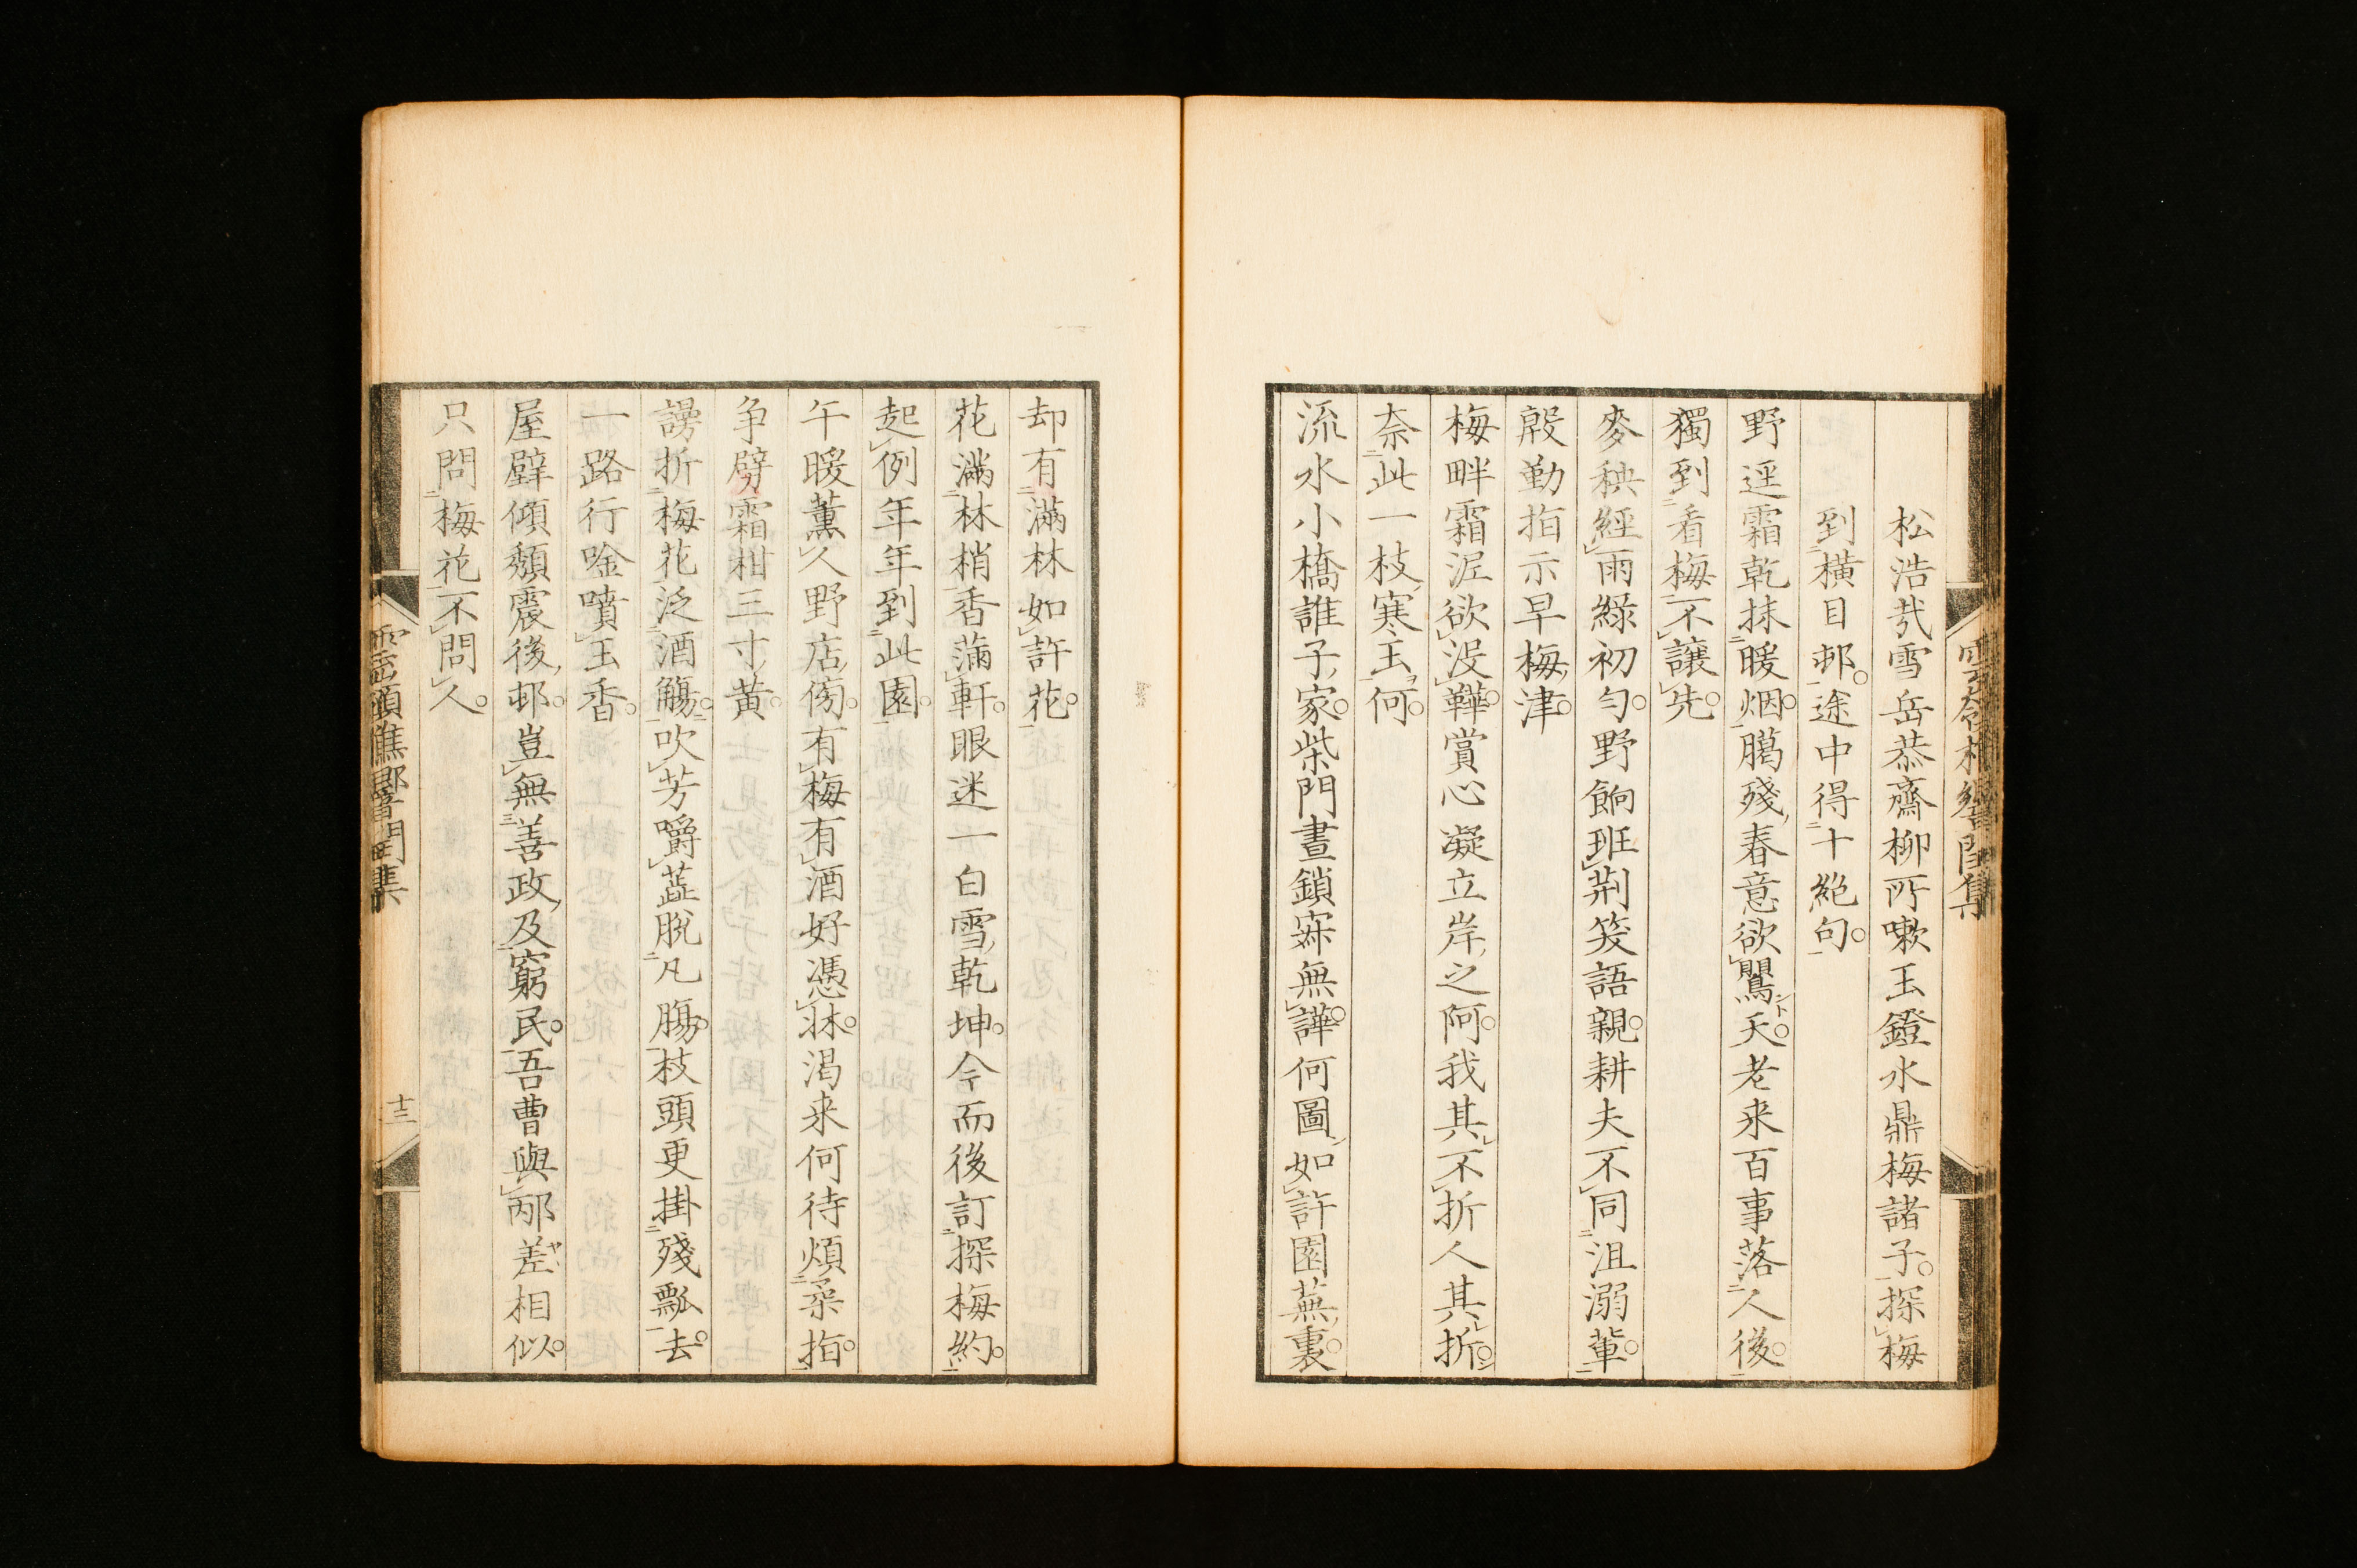 松浩哉雪岳恭齋柳所嗽玉鐙水鼎梅諸子。探梅
到横目邨。途中得十絶句。
野逕霜乾抹暖烟。臈殘、春意欲鷽天。老来百事落人後。
獨到看梅不讓先。
麥秧經雨緑初匀。野餉班荆笑語親。耕夫不同沮溺輩。
殷勤指示早梅、津。
梅畔霜泥欲没鞾。賞心凝立岸、之阿。我其不折人其折。
奈此一枝、寒玉何。
流水小橋誰子、家。柴門晝鎖寂無譁。何圖如許園蕪、裏。
却有滿林如許花。
花滿林梢香滿軒。眼迷一白雪、乾坤。今而後訂探梅約。
起例年年到此園。
午暖薰人野店、傍。有梅有酒好憑牀。渇来何待煩柔指。
争劈霜柑三寸、黄。
謾折梅花泛酒觴。吹芳嚼蕋脱凡膓。枝頭更掛殘瓢去。
一路行唫噴玉香。
屋壁傾頽震後、邨。豈無善政、及窮民。吾曹與邴差相似。
只問梅花不問人。
雲嵓頑樵鄰響閒集
十三